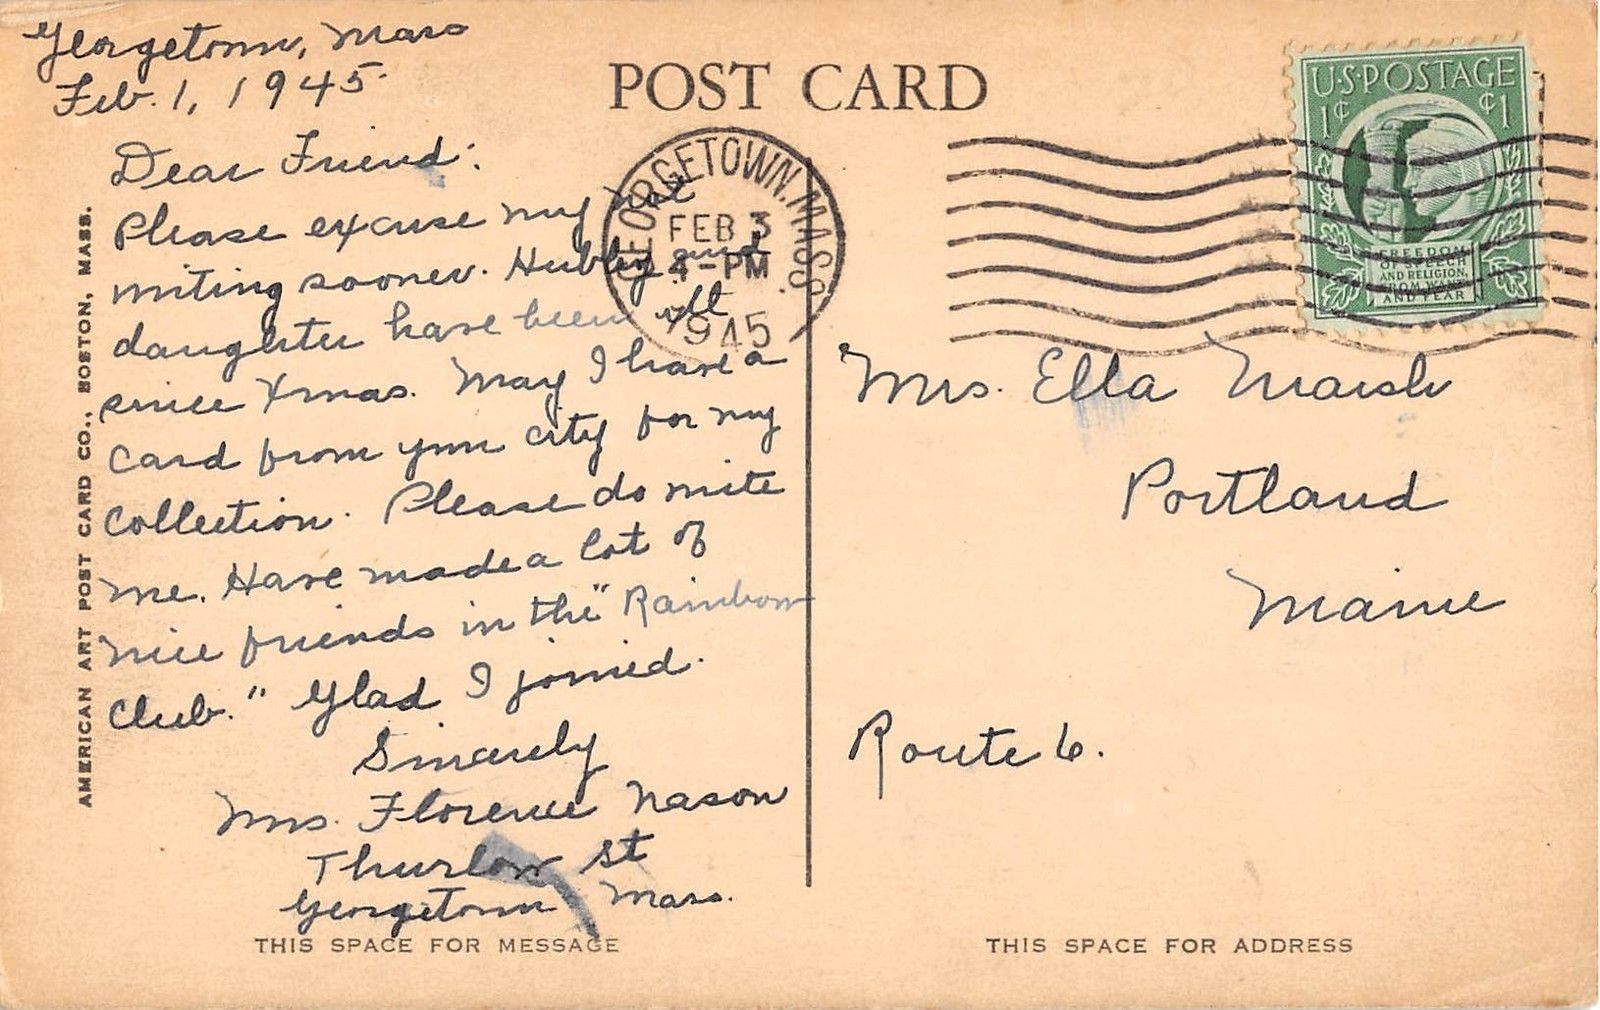 Georgetown, Mass
Feb. 1, 1945.
Dear Friend:
Please excuse my not
writing sooner. Hubby and
daughter have been ill
since Xmas. May I have a
card from your city for my
collection. Please do write
me. Have made a lot of
nice friends in the "Rainbow
Club." Glad I joined.
Sincerely
Mrs. Florence Nason
Thurlow St
Georgetown Mass.
THIS SPACE FOR MESSAGE
AMERICAN ART POST CARD CO., BOSTON, MASS.
POST CARD
GEORGETOWN, MASS.
FEB 3
4-PM
1945
U·S·POSTAGE
1¢ ¢1
FREEDOM
OF SPEECH
AND RELIGION,
FROM WANT
AND FEAR
Mrs. Ella Marsh
Portland
Maine
Route 6.
THIS SPACE FOR ADDRESS